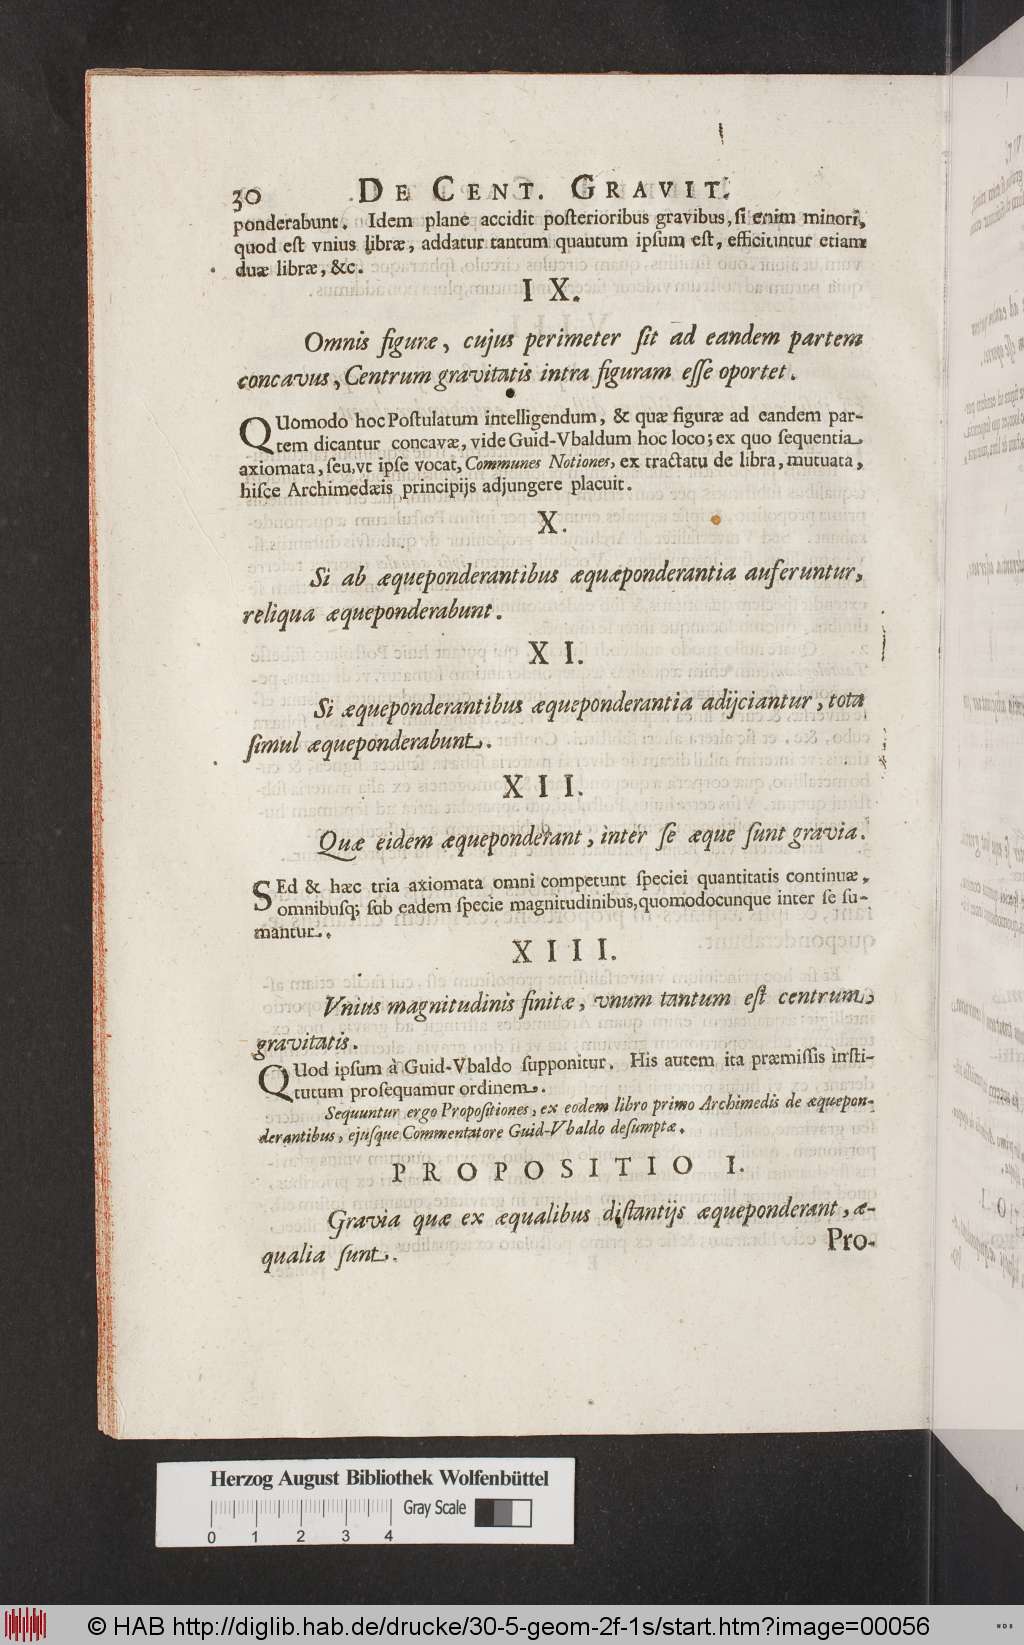 30 DE CENT. GRAVIT.
ponderabunt. Idem plane accidit posterioribus gravibus, si enim minori,
quod est vnius libræ, addatur tantum quautum ipsum est, efficiuntur etiam
duæ libræ, &c.
IX.
Omnis figuræ, cujus perimeter sit ad eandem partem
concavus, Centrum gravitatis intra figuram esse oportet.
QUomodo hoc Postulatum intelligendum, & quæ figuræ ad eandem par-
tem dicantur concavæ, vide Guid-Vbaldum hoc loco; ex quo sequentia
axiomata, seu, vt ipse vocat, Communes Notiones, ex tractatu de libra, mutuata,
hisce Archimedæis principijs adjungere placuit.
X.
Si ab æqueponderantibus æquæponderantia auferuntur,
reliqua æqueponderabunt.
XI.
Si æqueponderantibus æqueponderantia adijciantur, tota
simul æqueponderabunt.
XII.
Quæ eidem æqueponderant, inter se æque sunt gravia.
SEd & hæc tria axiomata omni competunt speciei quantitatis continuæ,
omnibusq; sub eadem specie magnitudinibus, quomodocunque inter se su-
mantur.
XIII.
Vnius magnitudinis finitæ, vnum tantum est centrum
gravitatis.
QUod ipsum à Guid-Vbaldo supponitur. His autem ita præmissis insti-
tutum prosequamur ordinem.
Sequuntur ergo Propositiones, ex eodem libro primo Archimedis de æquepon-
derantibus, ejusque Commentatore Guid-Vbaldo desumptæ.
PROPOSITIO I.
Gravia quæ ex æqualibus distantijs æqueponderant, æ-
qualia sunt.
Pro-
Herzog August Bibliothek Wolfenbüttel
Gray Scale
0 1 2 3 4
© HAB http://diglib.hab.de/drucke/30-5-geom-2f-1s/start.htm?image=00056